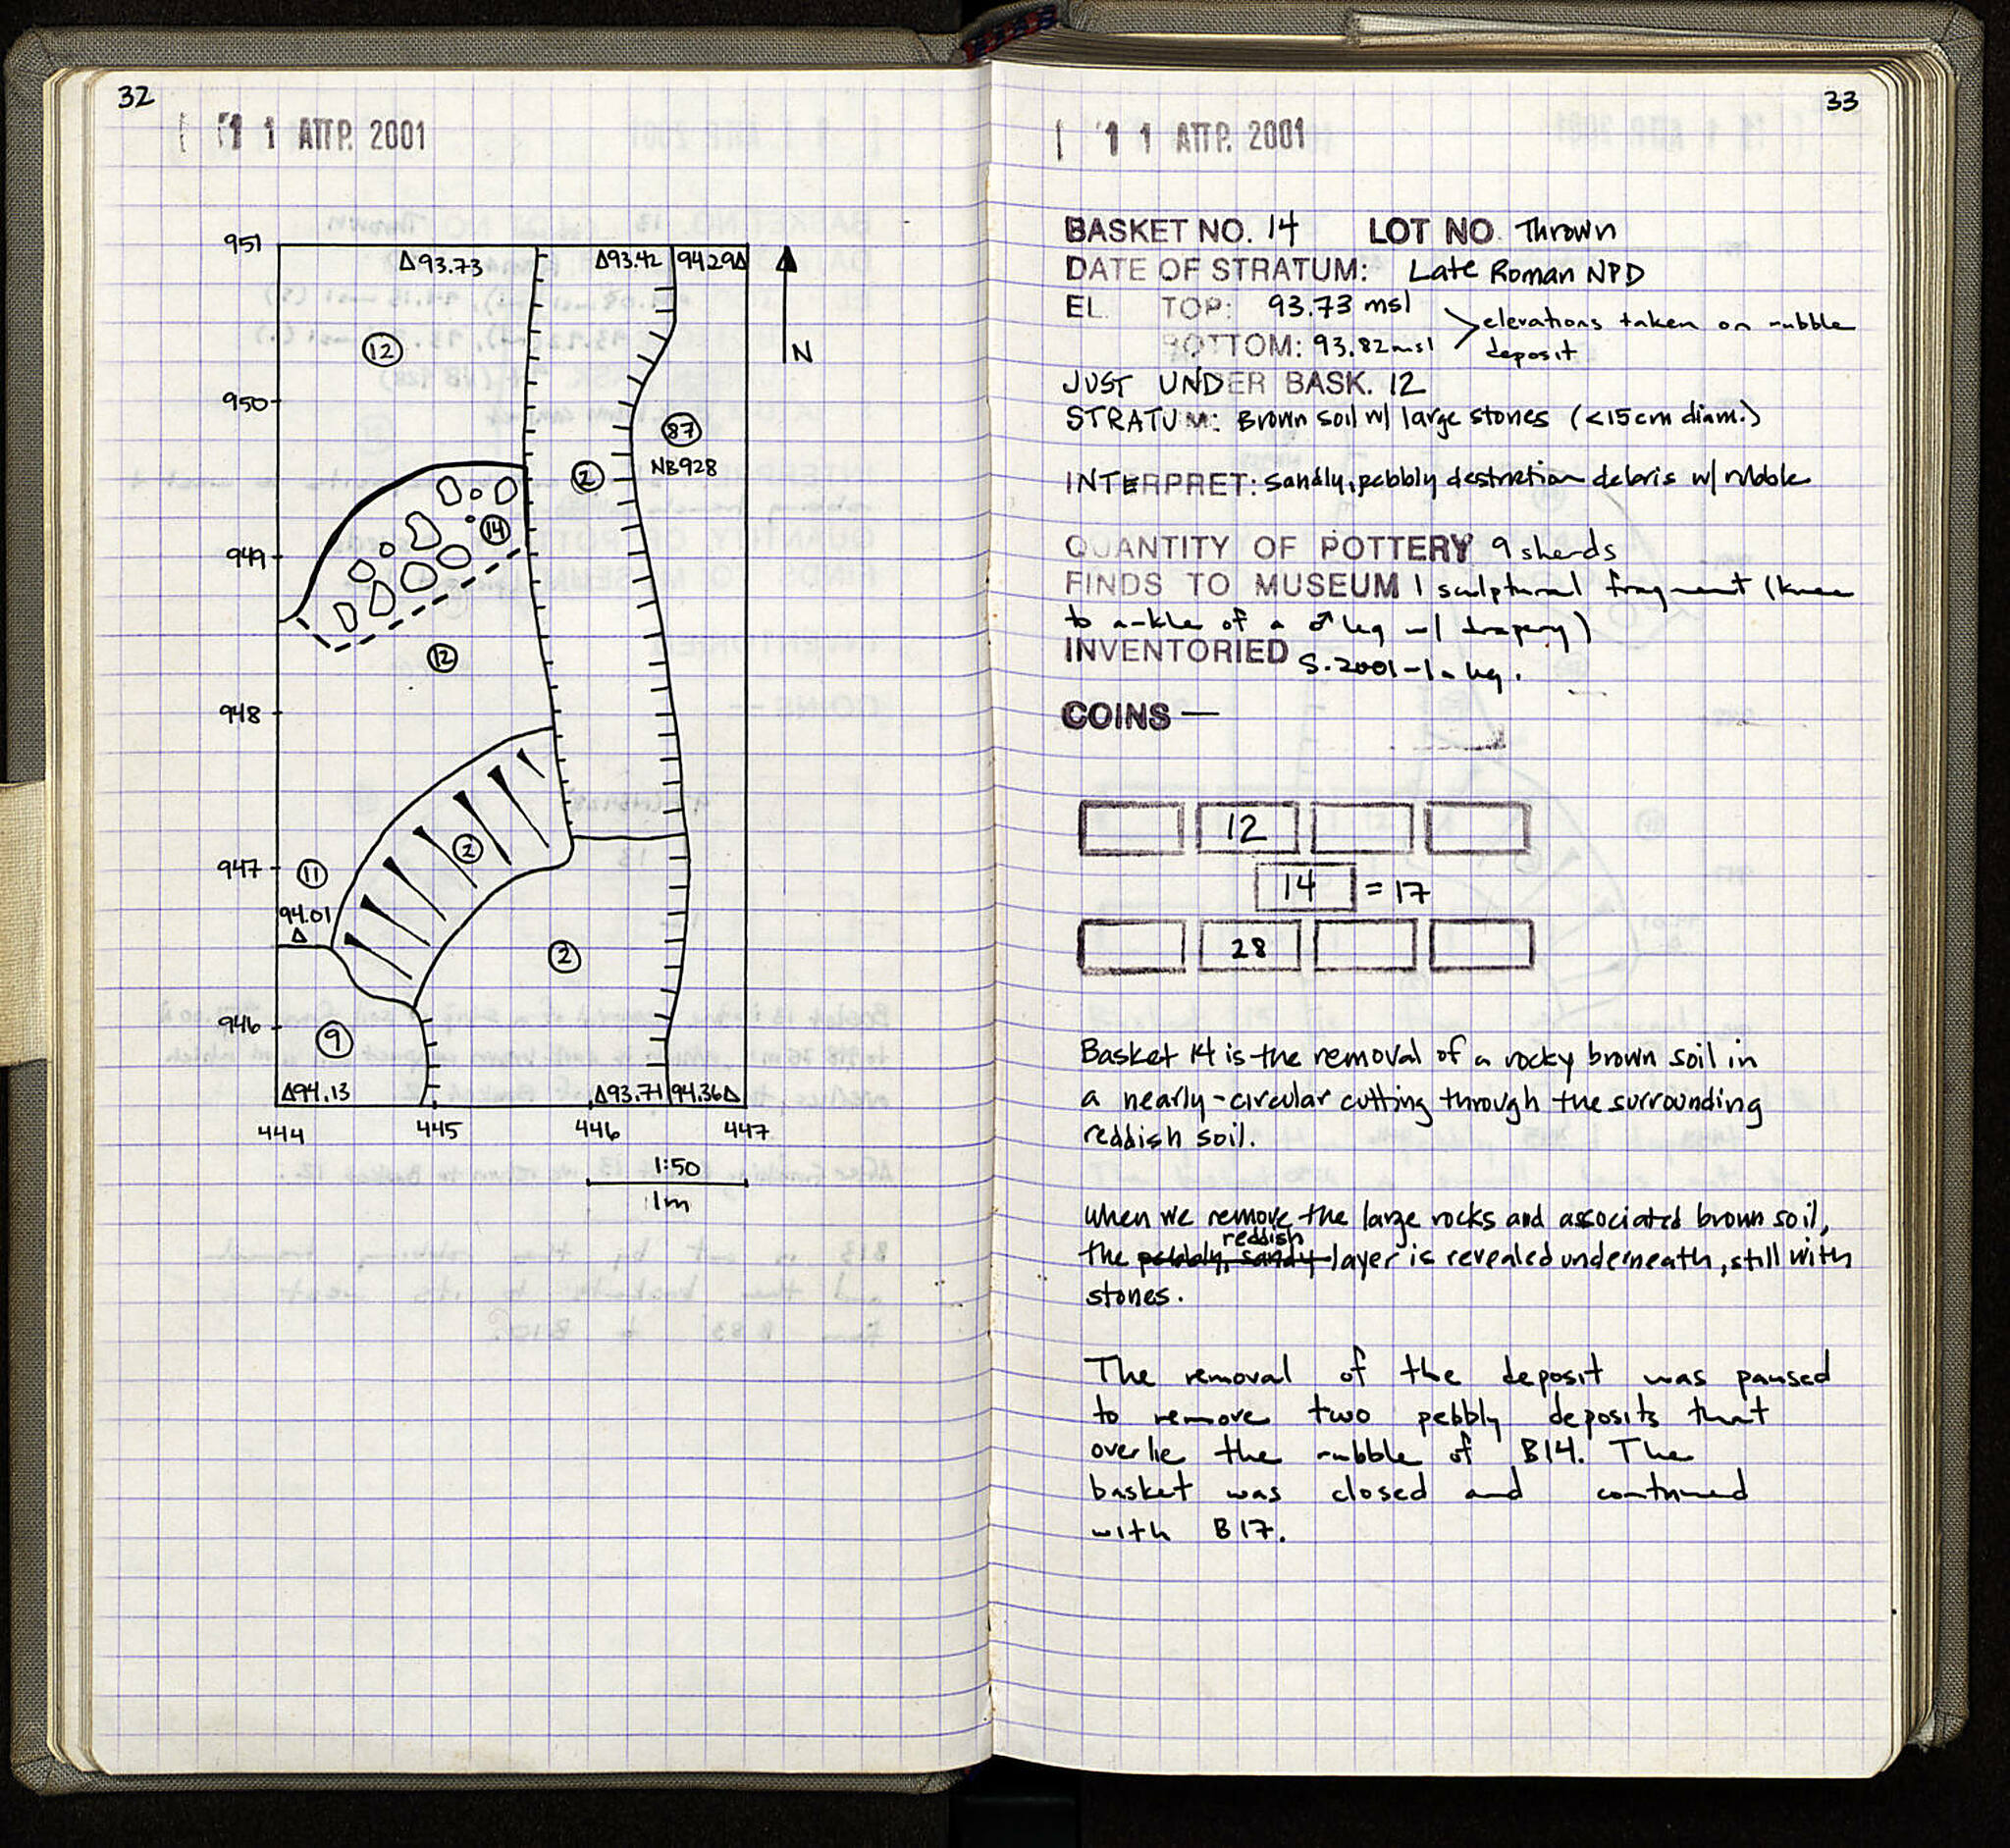 32
11 ΑΠΡ. 2001
951
Δ93.73
Δ93.42
94.29Δ
N
12
950
87
NB928
2
14
949
12
948
2
947
11
94.01
Δ
2
946
9
Δ94.13
Δ93.71
94.36Δ
444
445
446
447
1:50
1m
33
11 ΑΠΡ. 2001
BASKET NO. 14 LOT NO. Thrown
DATE OF STRATUM: Late Roman NPD
EL. TOP: 93.73 msl
elevations taken on rubble
BOTTOM: 93.82 msl
deposit
JUST UNDER BASK. 12
STRATUM: Brown soil w/ large stones (<15cm diam.)
INTERPRET: Sandly, pebbly destruction debris w/ rubble
QUANTITY OF POTTERY 9 sherds
FINDS TO MUSEUM 1 sculptural fragment (knee
to ankle of a ♂ leg w/ drapery)
INVENTORIED S-2001-1 leg.
COINS —
12
14 = 17
28
Basket 14 is the removal of a rocky brown soil in
a nearly-circular cutting through the surrounding
reddish soil.
When we remove the large rocks and associated brown soil,
reddish
the pebbly, sandy layer is revealed underneath, still with
stones.
The removal of the deposit was paused
to remove two pebbly deposits that
overlie the rubble of B14. The
basket was closed and continued
with B17.